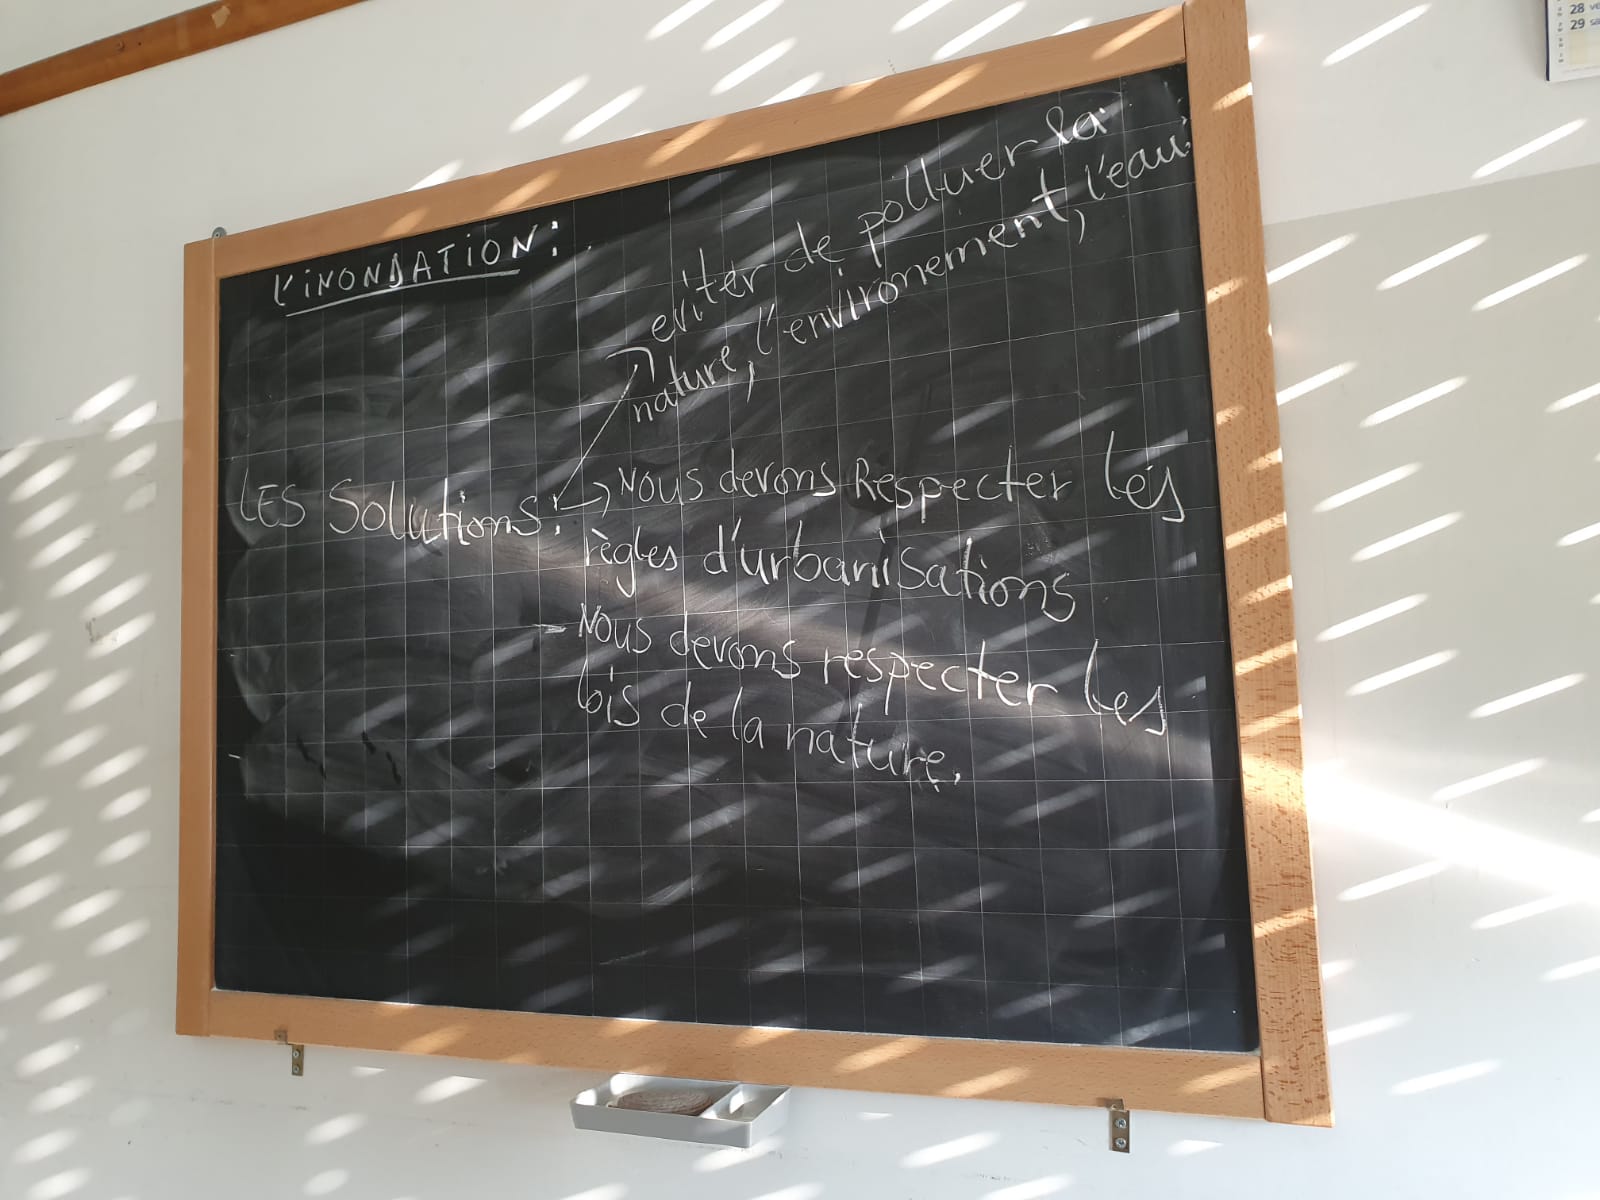 L'iNONDATION:
eviter de polluer la
nature, l'environement, l'eau.
LES Solutions: Nous devons Respecter les
règles d'urbanisations
- Nous devons respecter les
lois de la nature.
28 ve
29 sa